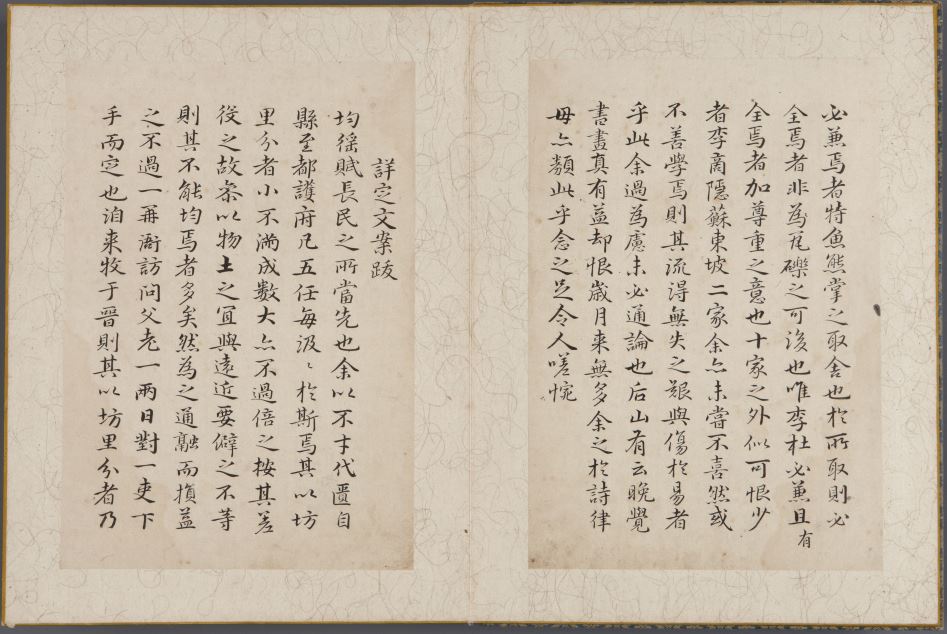 必兼焉者特魚熊掌之取舍也於所取則必
全焉者非為瓦礫之可後也唯李杜必兼且有
全焉者加尊重之意也十家之外似可恨少
者李商隱蘇東坡二家余亦未嘗不喜然或
不善學焉則其流得無失之艱與傷於易者
乎此余過為慮未必通論也后山有云晚覺
書畫真有益却恨歲月来無多余之於詩律
毋亦類此乎念之足令人嗟惋
詳定文案跋
均徭賦長民之所當先也余以不才代匱自
縣至都護府凡五任每汲〻於斯焉其以坊
里分者小不滿成數大亦不過倍之按其差
役之故叅以物土之宜與遠近要僻之不等
則其不能均焉者多矣然為之通融而損益
之不過一再諮訪問父老一兩日對一吏下
手而定也洎来牧于晉則其以坊里分者乃